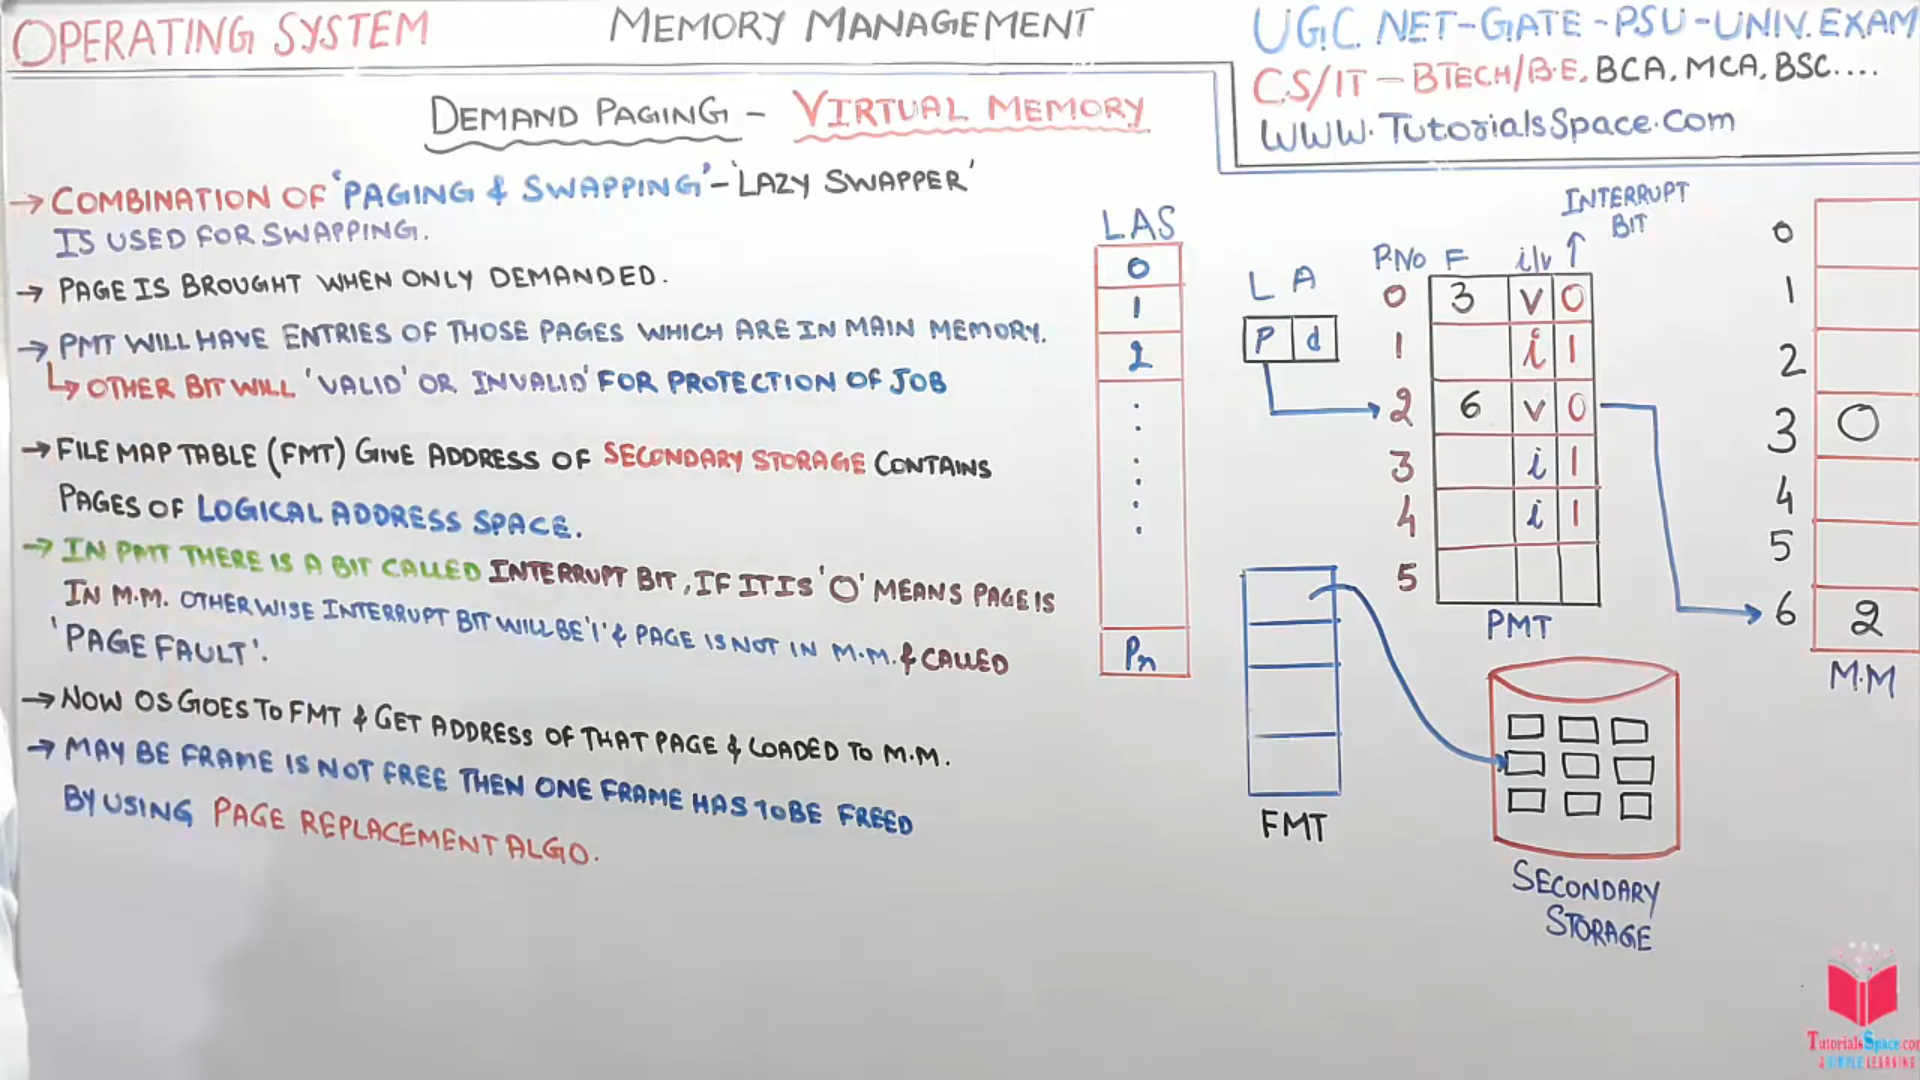 OPERATING SYSTEM
MEMORY MANAGEMENT
UGC NET-GATE-PSU-UNIV.EXAM
CS/IT-BTECH/B.E, BCA, MCA, BSC....
WWW.TutorialsSpace.com
DEMAND PAGING - VIRTUAL MEMORY
→ COMBINATION OF 'PAGING & SWAPPING' - 'LAZY SWAPPER'
IS USED FOR SWAPPING.
→ PAGE IS BROUGHT WHEN ONLY DEMANDED.
→ PMT WILL HAVE ENTRIES OF THOSE PAGES WHICH ARE IN MAIN MEMORY.
↳ OTHER BIT WILL 'VALID' OR INVALID' FOR PROTECTION OF JOB
→ FILE MAP TABLE (FMT) GIVE ADDRESS OF SECONDARY STORAGE CONTAINS
PAGES OF LOGICAL ADDRESS SPACE.
→ IN PMT THERE IS A BIT CALLED INTERRUPT BIT, IF IT IS 'O' MEANS PAGE IS
IN M.M. OTHERWISE INTERRUPT BIT WILL BE '1' & PAGE IS NOT IN M.M. & CALLED
'PAGE FAULT'.
→ NOW OS GOES TO FMT & GET ADDRESS OF THAT PAGE & LOADED TO M.M.
→ MAY BE FRAME IS NOT FREE THEN ONE FRAME HAS TO BE FREED
BY USING PAGE REPLACEMENT ALGO.
LAS
0
1
2
Pn
L A
P d
FMT
INTERRUPT
BIT
P.NO F i/v ↑
0 3 v 0
1 i 1
2 6 v 0
3 i 1
4 i 1
5
PMT
SECONDARY
STORAGE
0
1
2
3 0
4
5
6 2
M.M
TutorialsSpace.com